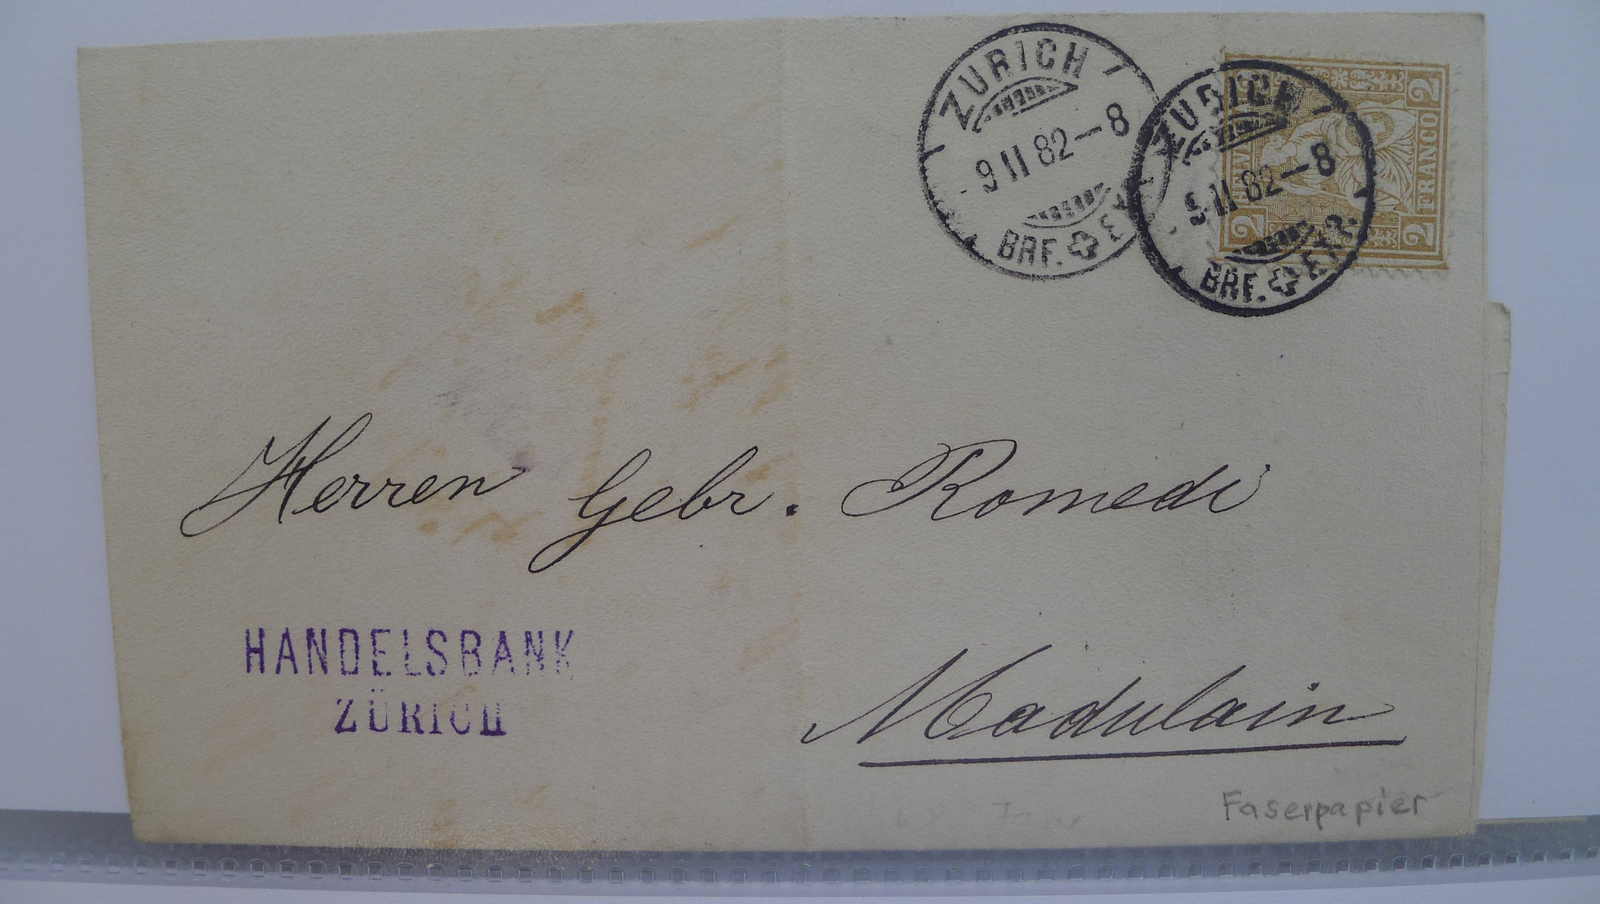 ZÜRICH
9 II 82–8
BRF. EXP.
ZÜRICH
9 II 82–8
BRF. EXP.
2 FRANCO 2
2
Herren Gebr. Romedi
HANDELSBANK
ZÜRICH
Madulain
Faserpapier